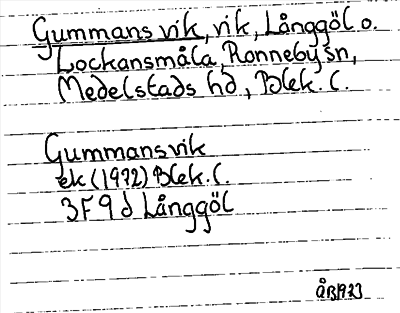 Gummans vik, vik, Långgöl o.
Lockansmåla, Ronneby sn,
Medelstads hd, Blek. l.
Gummansvik
ek (1972) Blek. l.
3F 9d Långgöl
ÅB1973